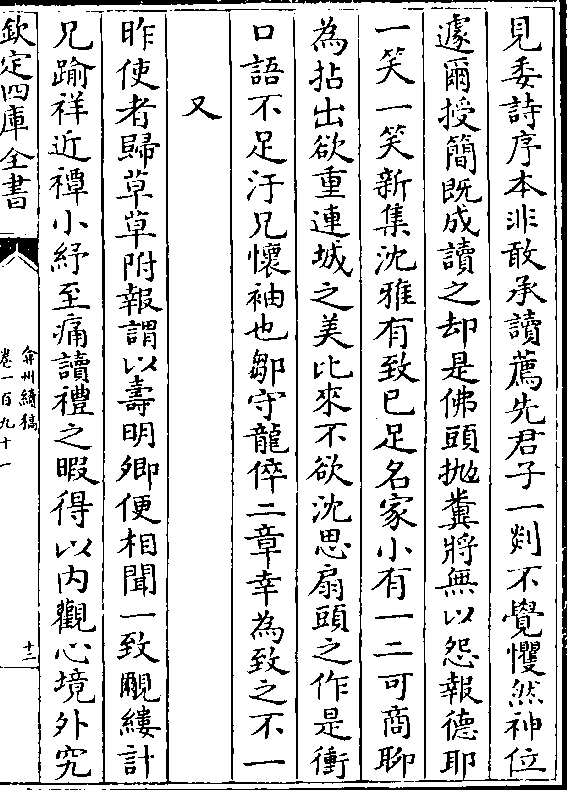 見委詩序本非敢承讀薦先君子一剡不覺懼然神位
遽爾授簡既成讀之却是佛頭拋糞將無以怨報德耶
一笑一笑新集沈雅有致已足名家小有一二可商聊
為拈出欲重連城之美比來不欲沈思扇頭之作是衝
口語不足汙兄懷袖也鄒守龍倅二章幸為致之不一
又
昨使者歸草草附報謂以壽明卿便相聞一致覼縷計
兄踰祥近禫小紓至痛讀禮之暇得以内觀心境外究
欽定四庫全書
弇州續稿
卷一百九十一
十二